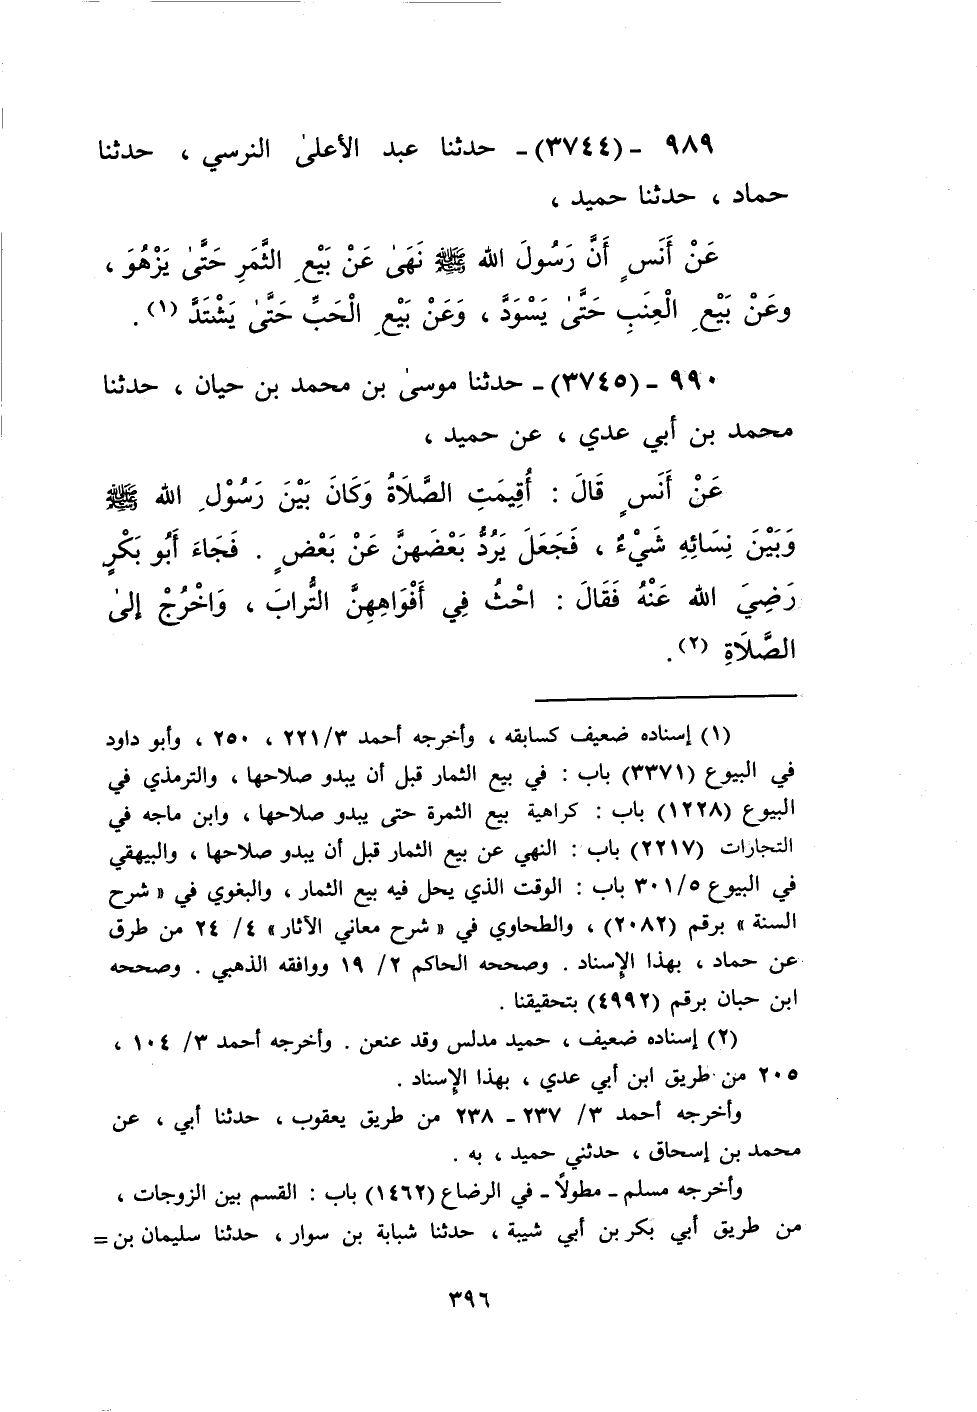 ٩٨٩ - (٣٧٤٤) - حدثنا عبد الأعلىٰ النرسي ، حدثنا
حماد ، حدثنا حميد ،
عَنْ أَنَسٍ أَنَّ رَسُولَ الله ﷺ نَهَىٰ عَنْ بَيْعِ الثَّمَرِ حَتَّىٰ يَزْهُوَ ،
وعَنْ بَيْعِ الْعِنَبِ حَتَّىٰ يَسْوَدَّ ، وَعَنْ بَيْعِ الْحَبِّ حَتَّىٰ يَشْتَدَّ (١) .
٩٩٠ - (٣٧٤٥) - حدثنا موسىٰ بن محمد بن حيان ، حدثنا
محمد بن أبي عدي ، عن حميد ،
عَنْ أَنَسٍ قَالَ : أُقِيمَتِ الصَّلَاةُ وَكَانَ بَيْنَ رَسُوْلِ الله ﷺ
وَبَيْنَ نِسَائِهِ شَيْءٌ ، فَجَعَلَ يَرُدُّ بَعْضَهنَّ عَنْ بَعْضٍ . فَجَاءَ أَبُو بَكْرٍ
رَضِيَ الله عَنْهُ فَقَالَ : احْثُ فِي أَفْوَاهِهِنَّ التُّرابَ ، وَاخْرُجْ إلىٰ
الصَّلَاةِ (٢) .
(١) إسناده ضعيف كسابقه ، وأخرجه أحمد ٢٢١/٣ ، ٢٥٠ ، وأبو داود
في البيوع (٣٣٧١) باب : في بيع الثمار قبل أن يبدو صلاحها ، والترمذي في
البيوع (١٢٢٨) باب : كراهية بيع الثمرة حتى يبدو صلاحها ، وابن ماجه في
التجارات (٢٢١٧) باب : النهي عن بيع الثمار قبل أن يبدو صلاحها ، والبيهقي
في البيوع ٣٠١/٥ باب : الوقت الذي يحل فيه بيع الثمار ، والبغوي في « شرح
السنة » برقم (٢٠٨٢) ، والطحاوي في « شرح معاني الآثار » ٤/ ٢٤ من طرق
عن حماد ، بهذا الإسناد . وصححه الحاكم ٢/ ١٩ ووافقه الذهبي . وصححه
ابن حبان برقم (٤٩٩٢) بتحقيقنا .
(٢) إسناده ضعيف ، حميد مدلس وقد عنعن . وأخرجه أحمد ٣/ ١٠٤ ،
٢٠٥ من طريق ابن أبي عدي ، بهذا الإسناد .
وأخرجه أحمد ٣/ ٢٣٧ - ٢٣٨ من طريق يعقوب ، حدثنا أبي ، عن
محمد بن إسحاق ، حدثني حميد ، به .
وأخرجه مسلم - مطولاً - في الرضاع (١٤٦٢) باب : القسم بين الزوجات ،
من طريق أبي بكر بن أبي شيبة ، حدثنا شبابة بن سوار ، حدثنا سليمان بن =
٣٩٦